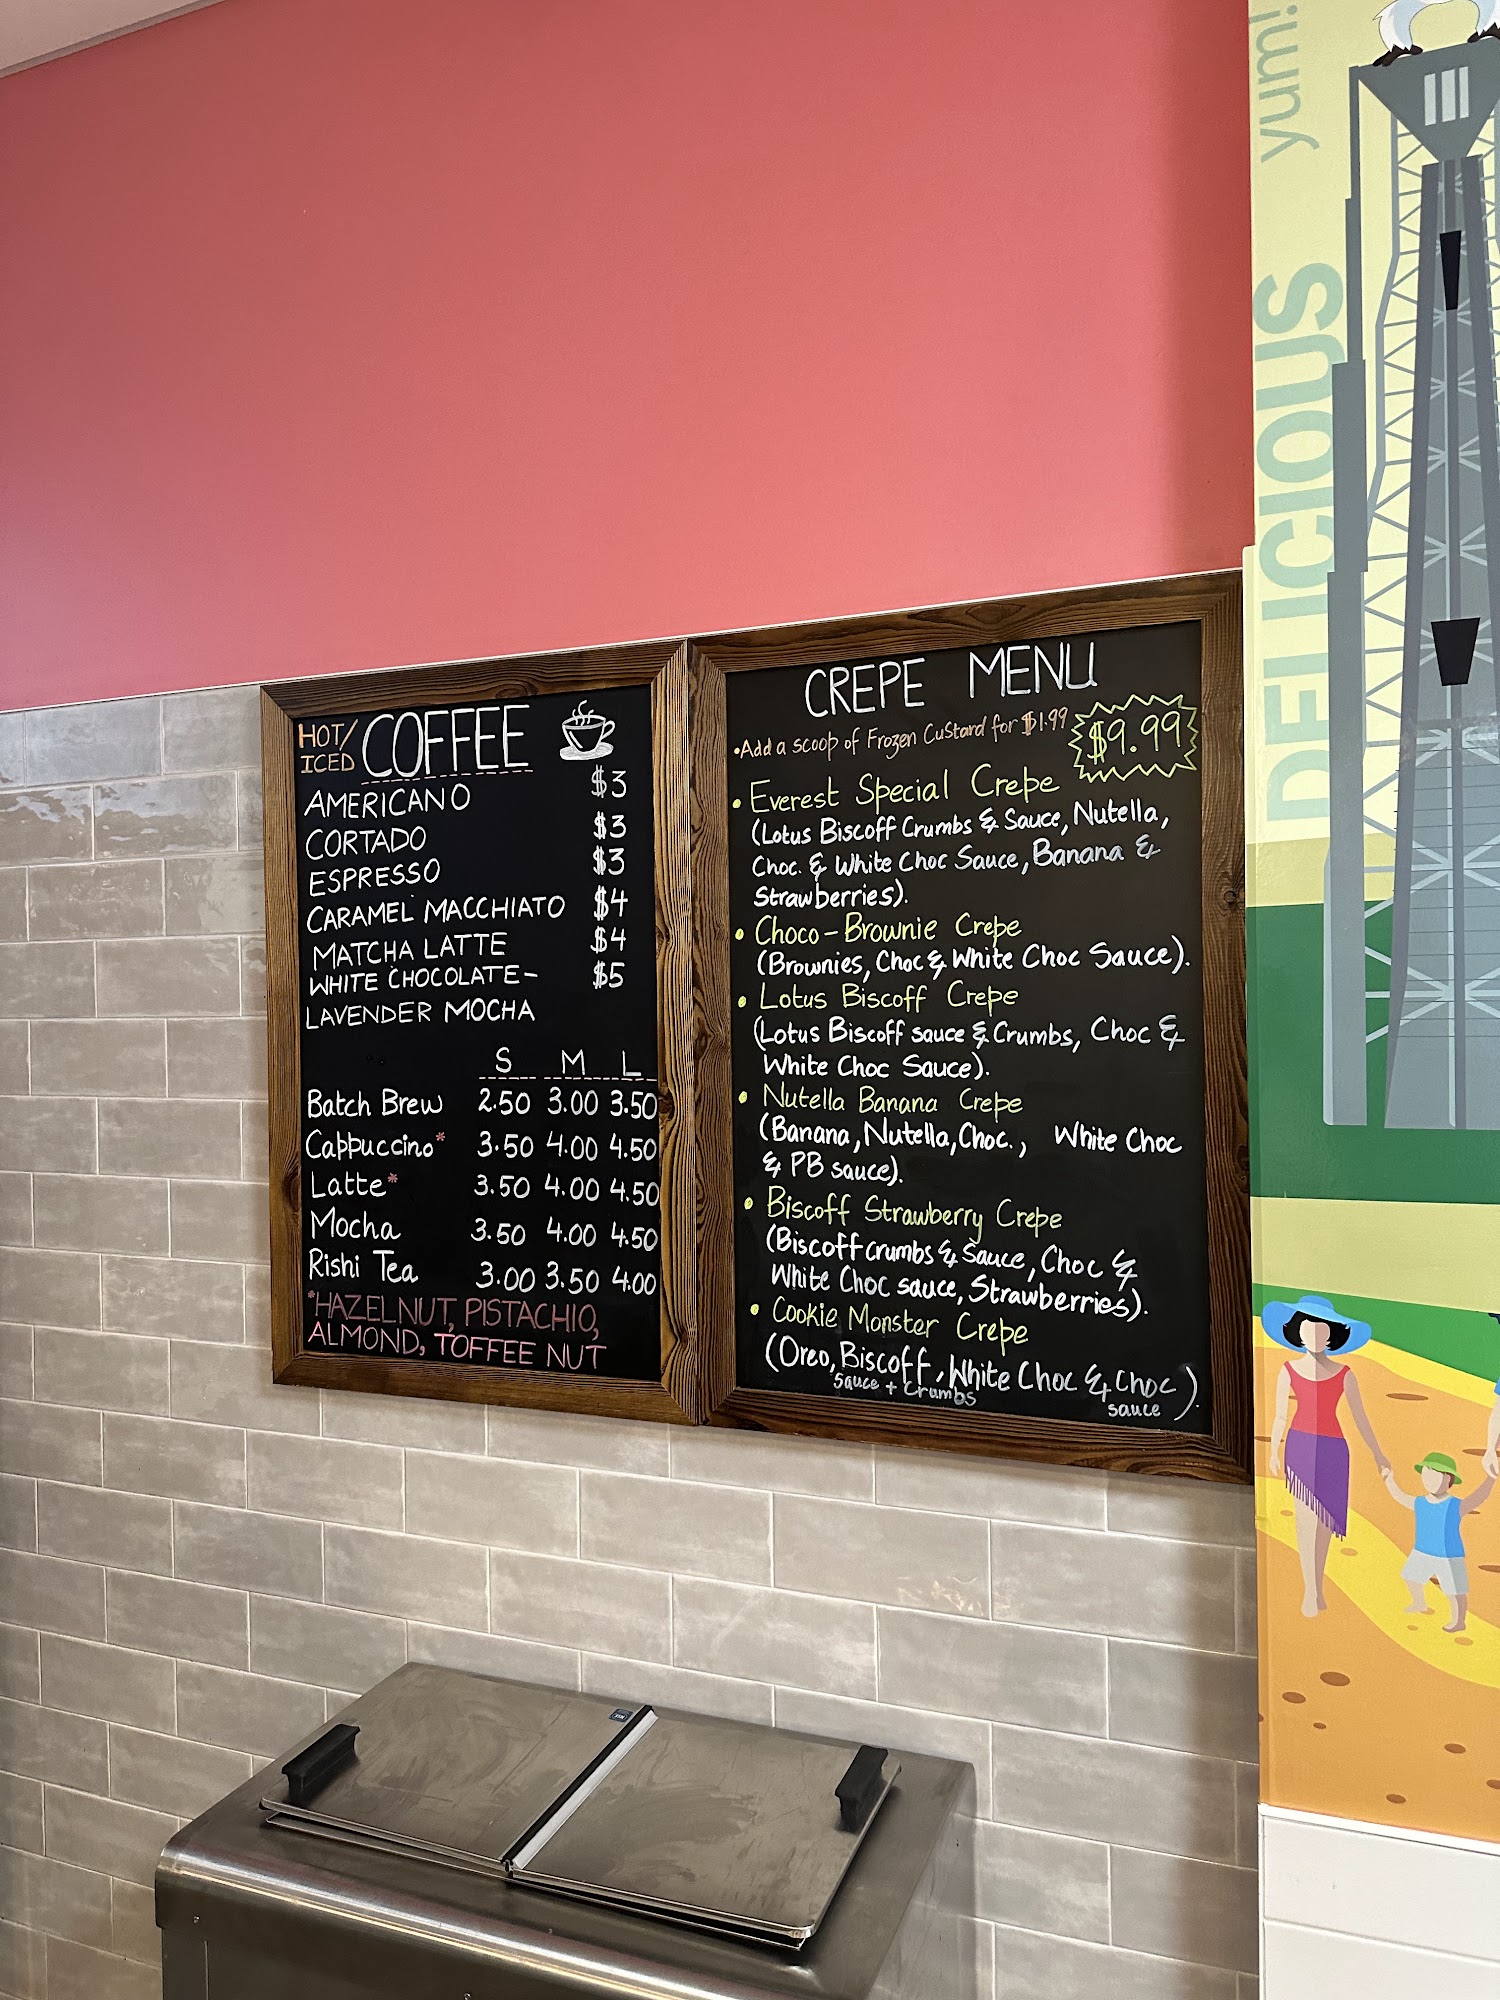 HOT/
ICED
COFFEE
AMERICANO $3
CORTADO $3
ESPRESSO $3
CARAMEL MACCHIATO $4
MATCHA LATTE $4
WHITE CHOCOLATE- $5
LAVENDER MOCHA
S M L
Batch Brew 2.50 3.00 3.50
Cappuccino* 3.50 4.00 4.50
Latte* 3.50 4.00 4.50
Mocha 3.50 4.00 4.50
Rishi Tea 3.00 3.50 4.00
*HAZELNUT, PISTACHIO,
ALMOND, TOFFEE NUT
CREPE MENU
•Add a scoop of Frozen Custard for $1.99
$9.99
• Everest Special Crepe
(Lotus Biscoff Crumbs & Sauce, Nutella,
Choc. & White Choc Sauce, Banana &
Strawberries).
• Choco-Brownie Crepe
(Brownies, Choc & White Choc Sauce).
• Lotus Biscoff Crepe
(Lotus Biscoff sauce & Crumbs, Choc &
White Choc Sauce).
• Nutella Banana Crepe
(Banana, Nutella, Choc., White Choc
& PB sauce).
• Biscoff Strawberry Crepe
(Biscoff crumbs & Sauce, Choc &
White Choc sauce, Strawberries).
• Cookie Monster Crepe
(Oreo, Biscoff, White Choc & Choc).
sauce + Crumbs sauce
yum!
DELICIOUS